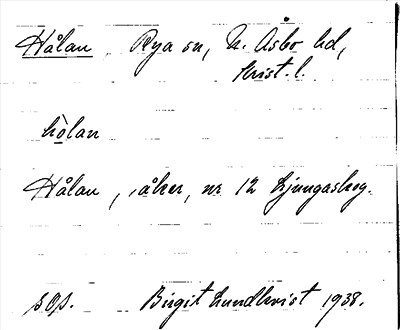 Hålan Rya sn, N. Åsbo hd,
Krist. l.
hòlan
Hålan, åker, nr 12 Ljungaskog.
s. 08.
Birgit Lundkvist 1938.